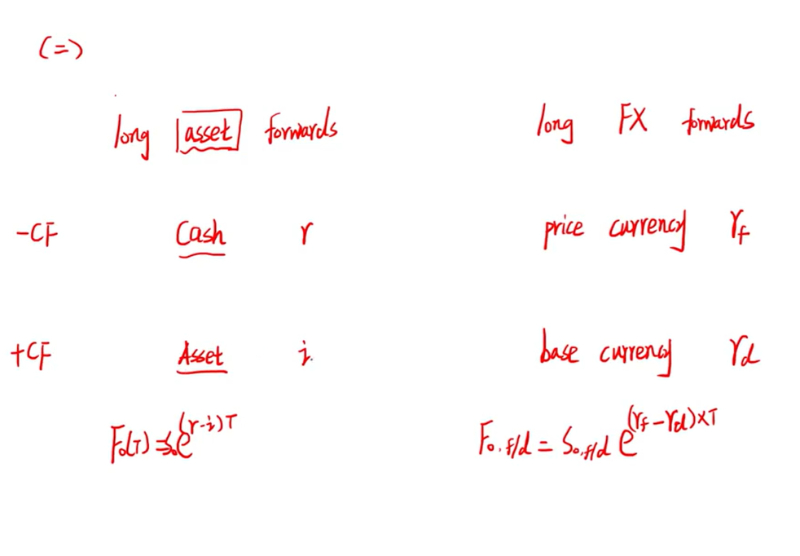 (=)
long asset forwards    long FX forwards
-CF    Cash    r    price currency    r_f
+CF    Asset    i    base currency    r_d
F₀(T) = S₀e^(r-i)T    F₀,f/d = S₀,f/d e^(r_f - r_d)×T